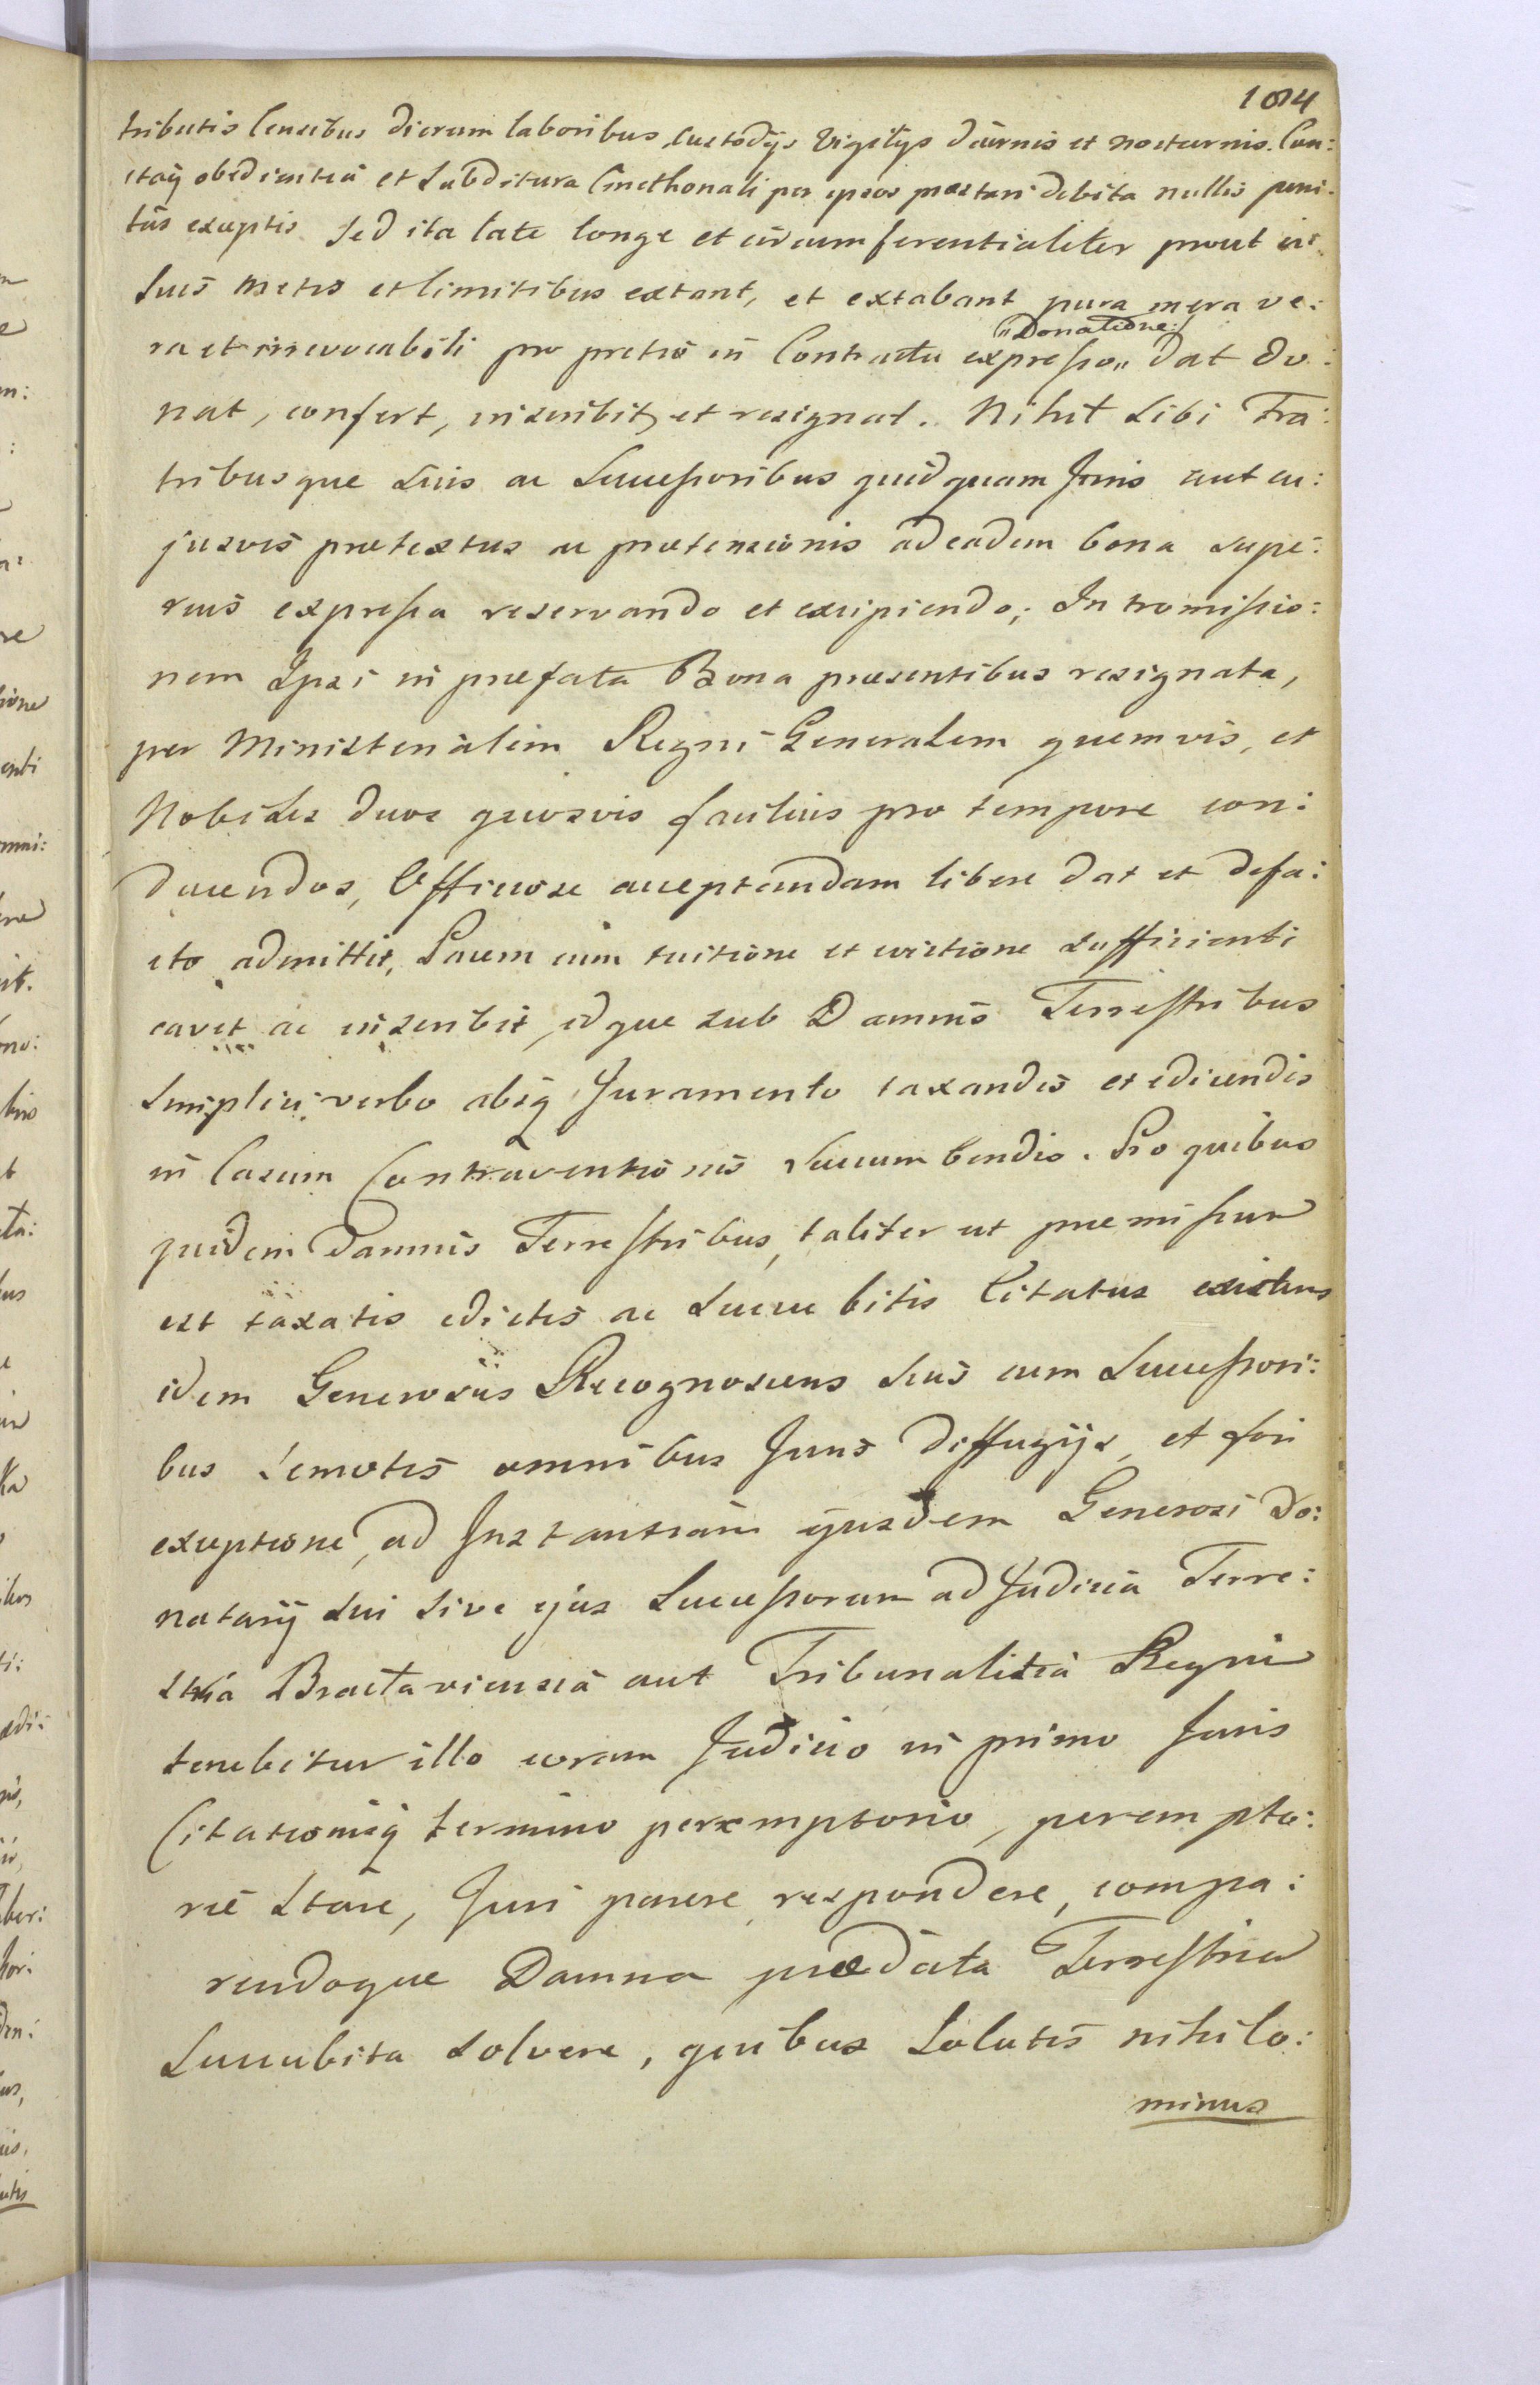 1014
tributis Censibus dierum laboribus, Custodÿs Vigilÿs diurnis et nocturnis. Cun:
ctaq obedientia et Subditura Cmethonali per ipsos præstari debita nullis peni:
tus exceptis. Sed ita late longe et circumferentialiter prout in
Suis metis et limitibus extant, et extabant pura mera ve:
"Donatione:/
ra et irrevocabili pro pretio in Contractu expresso" dat do:
nat, confert, inscribit, et resignat. Nihil Sibi Fra:
tribusque Suis ac Successoribus quidquam Juris aut cu:
jusvis prætextus ac prætensionis ad eadem bona supe:
rius expressa reservando et excipiendo; Intromissio:
nem Ipsi in præfata Bona præsentibus resignata,
per Ministerialem Regni Generalem quemvis, et
Nobiles duos quosvis facilius pro tempore con:
ducendos, Officiose acceptandam libere dat et defa:
cto admittit, Pacem cum tuitione et evictione sufficienti
cavet ac inscribit, idque sub Damnis Terrestribus
Simplici verbo absq Juramento taxandis et edicendis
in Casum Contraventionis Succumbendis. Pro quibus
quidem Damnis Terrestribus, taliter ut præmissum
est taxatis edictis ac Succubitis Citatus existens
idem Generosus Recognoscens Suis cum Successori:
bus Semotis omnibus Juris diffugÿs, et fori
exceptione, ad Instantiam ejusdem Generosi Do:
natarÿ Sui Sive ejus Successorum ad Judicia Terre:
stria Braclaviensia aut Tribunalitia Regni
tenebitur illo coram Judicio in primo Juris
Citationisq termino peremptorio, perempto:
rie Stare, Juri parere, respondere, compa:
rendoque Damna prædata Terrestria
Succubita solvere, quibus Solutis nihilo:
minus